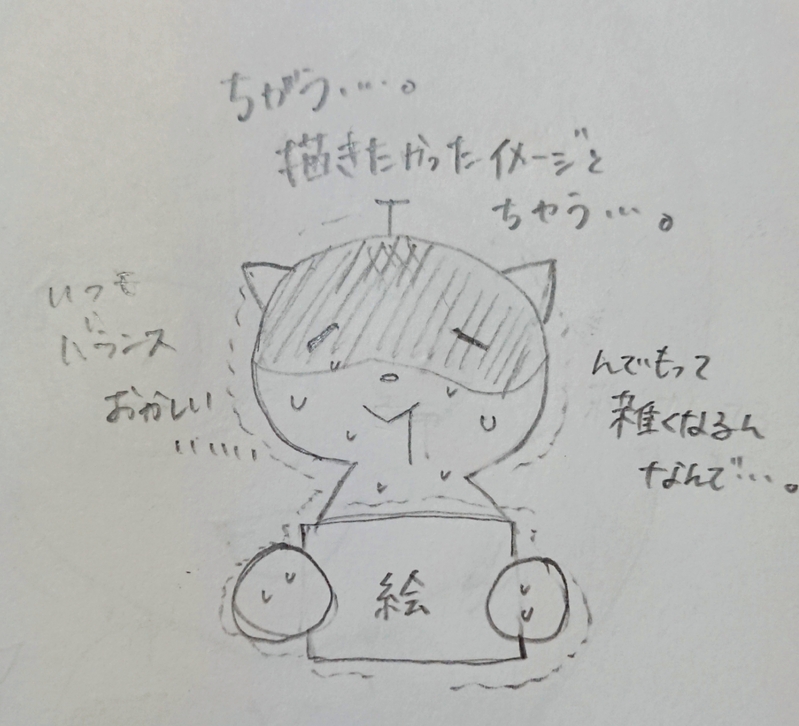 ちがう‥‥。
描きたかったイメージと
ちゃう…。
いつも
バランス
おかしい
‥‥‥
んでもって
雑くなるん
なんで…。
絵